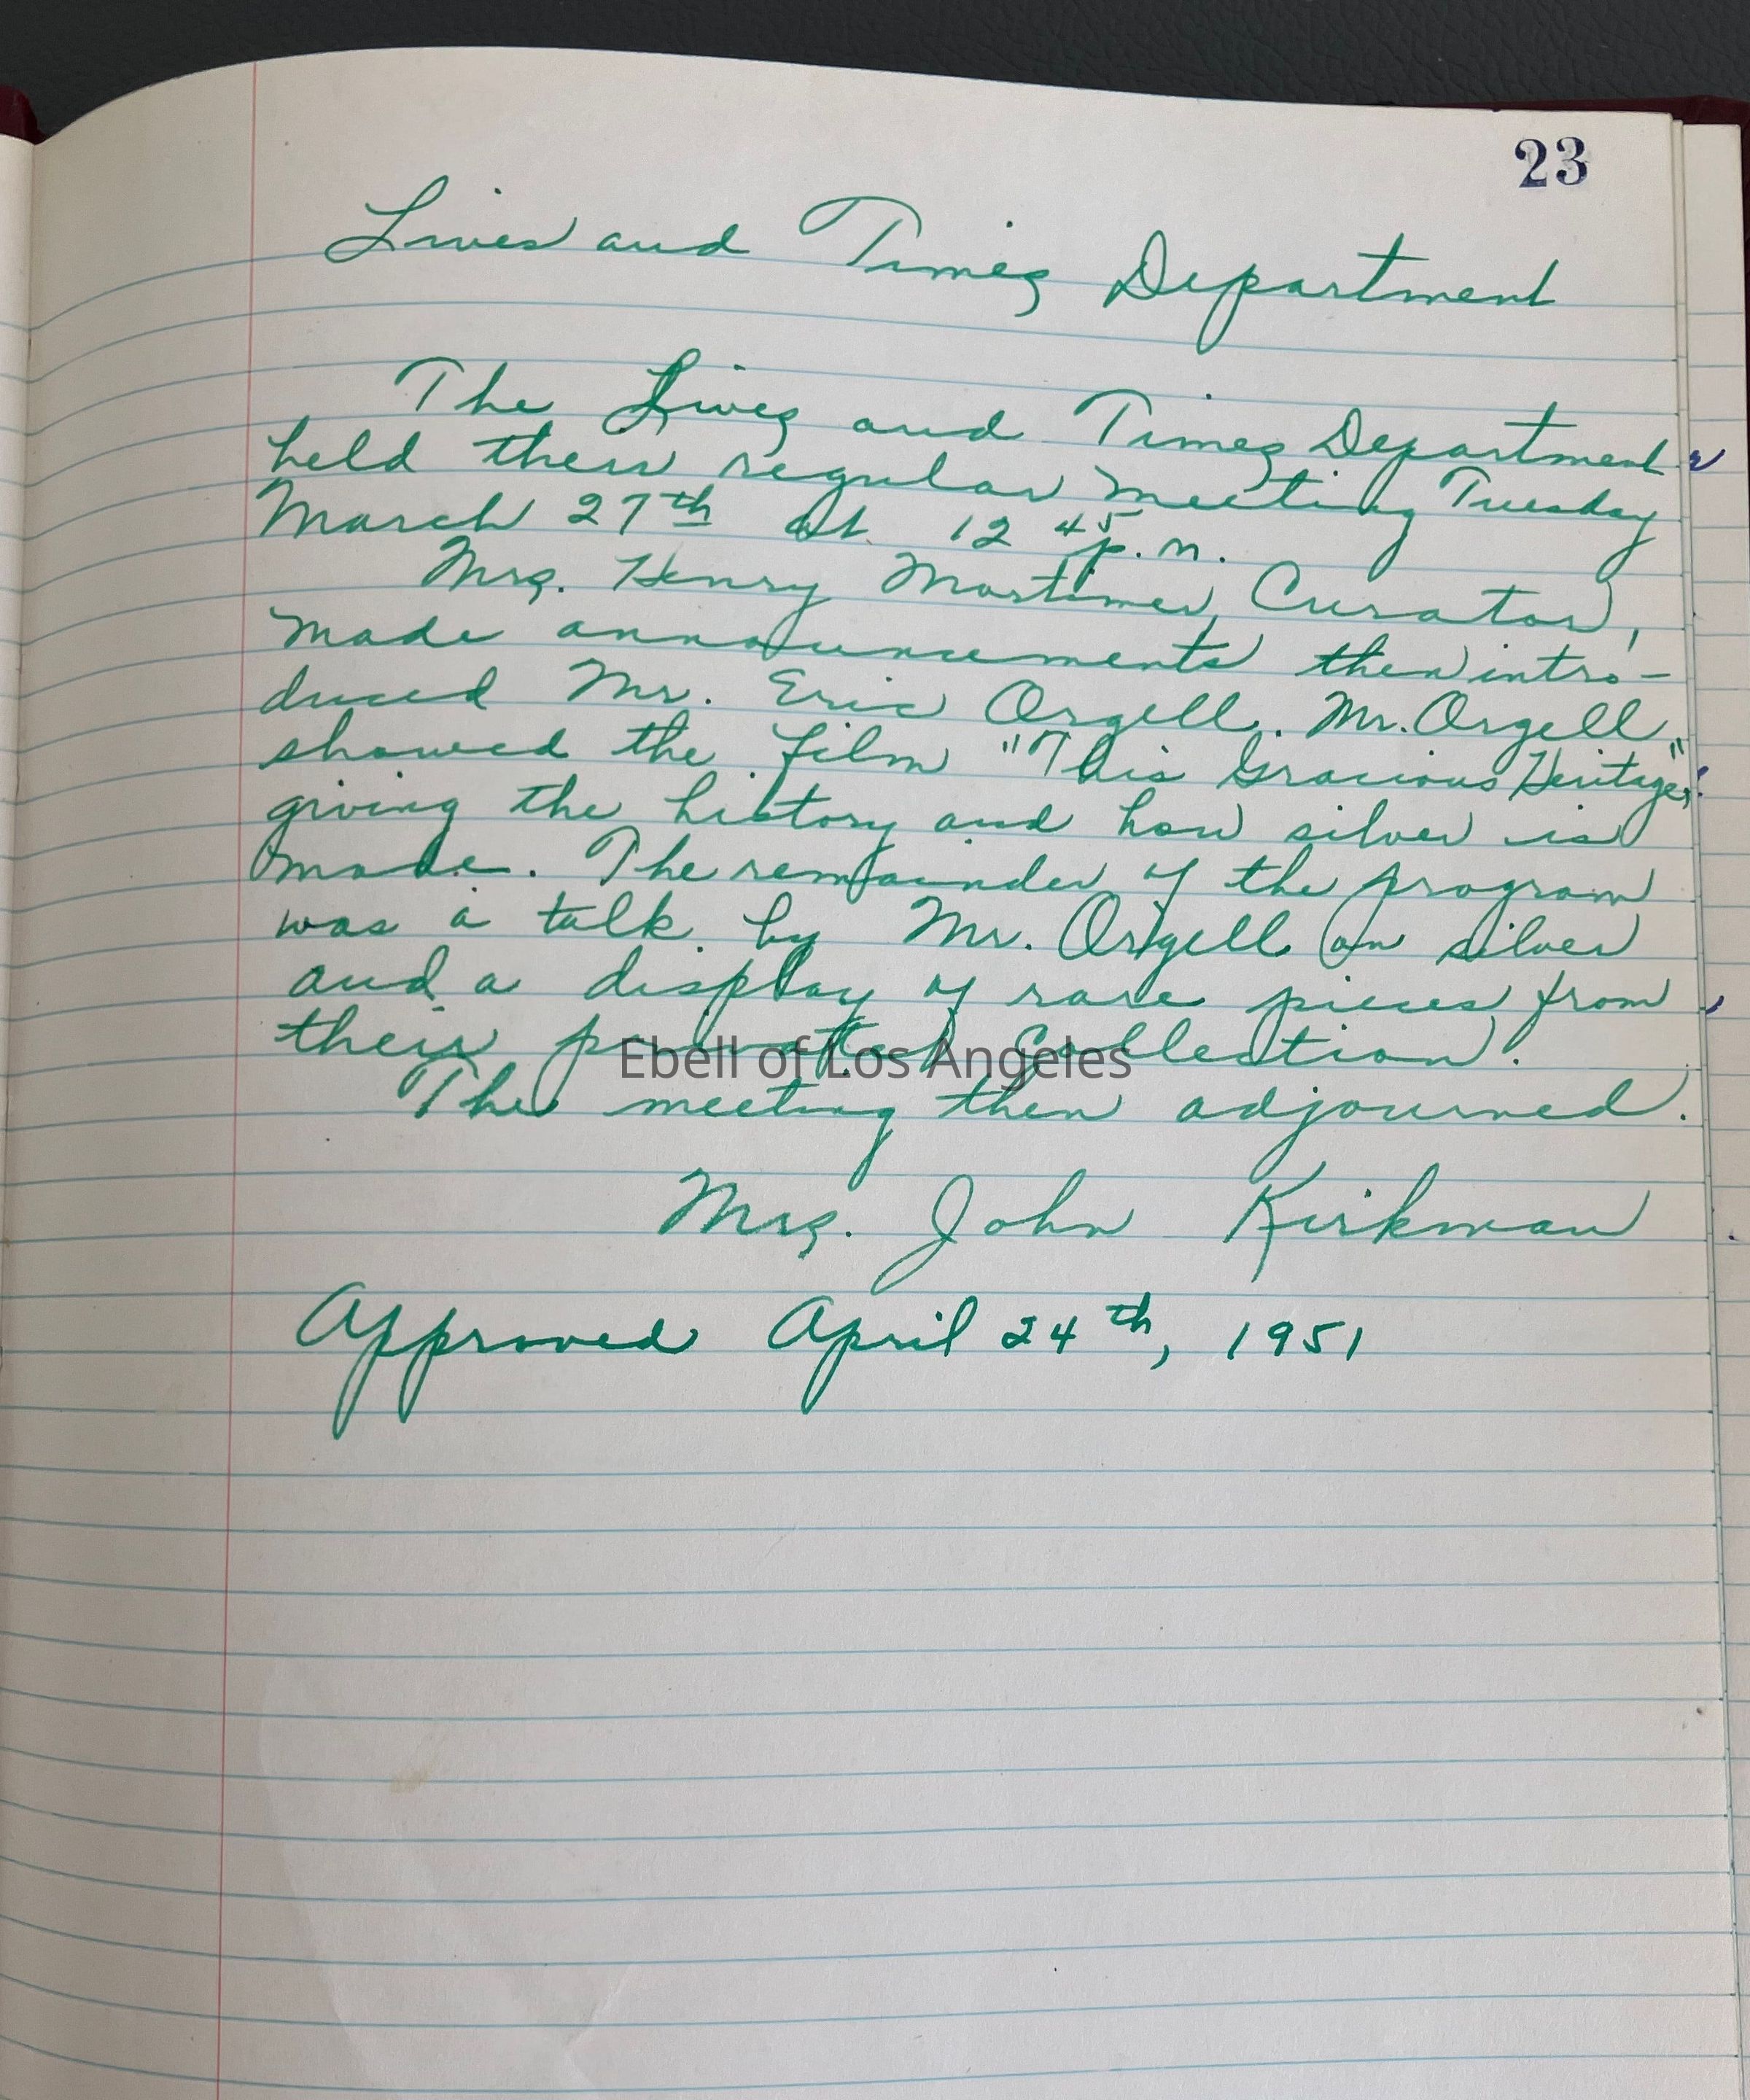 23
Lives and Times Department
The Lives and Times Department
held their regular meeting Tuesday
March 27th at 12 45 p.m.
Mrs. Henry Mortimer, Curator,
made announcements then intro-
duced Mr. Eric Orgell. Mr. Orgell
showed the film "This Gracious Heritage,"
giving the history and how silver is
made. The remainder of the program
was a talk by Mr. Orgell on silver
and a display of rare pieces from
their collection.
Ebell of Los Angeles
The meeting then adjourned.
Mrs. John Kirkman
Approved April 24th, 1951